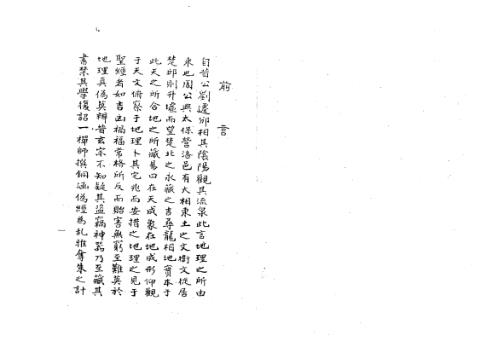 前言
自昔公劉遷邠相其陰陽觀其流泉此言地理之所由
來也周公與太保營洛邑有大相東土之文衛文從居
楚邱則升墟而望楚北之水藏之吉尋龍相地實本于
此天之所合地之所藏易曰在天成象在地成形仰觀
于天文俯察于地理卜其宅兆而安措之地理之見于
聖經者如吉凶禍福常格所反而貽害無窮至難莫於
地理真偽莫辨昔玄宗不知疑其盜竊神器乃至藏其
書禁其學復詔一禪師撰銅函偽經為亂雅奪朱之計
一